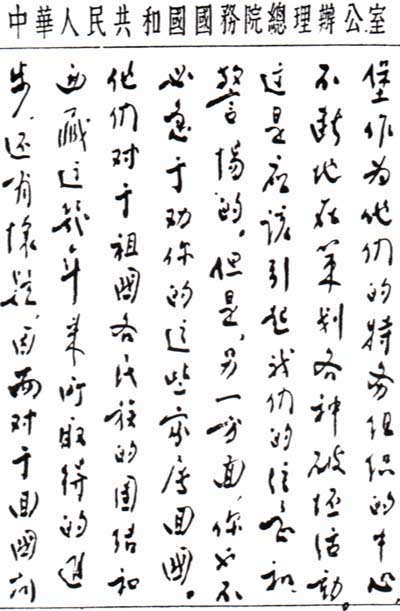 中華人民共和國國務院總理辦公室
堡作为他们的特务组织的中心
不断地在策划各种破坏活动，
这是应该引起我们的注意和
警惕的。但是，另一方面，你也不
必急于劝你的这些亲属回國。
他们对于祖國各民族的团结和
西藏这几年来所取得的进
步，还有懷疑，因而对于回國问